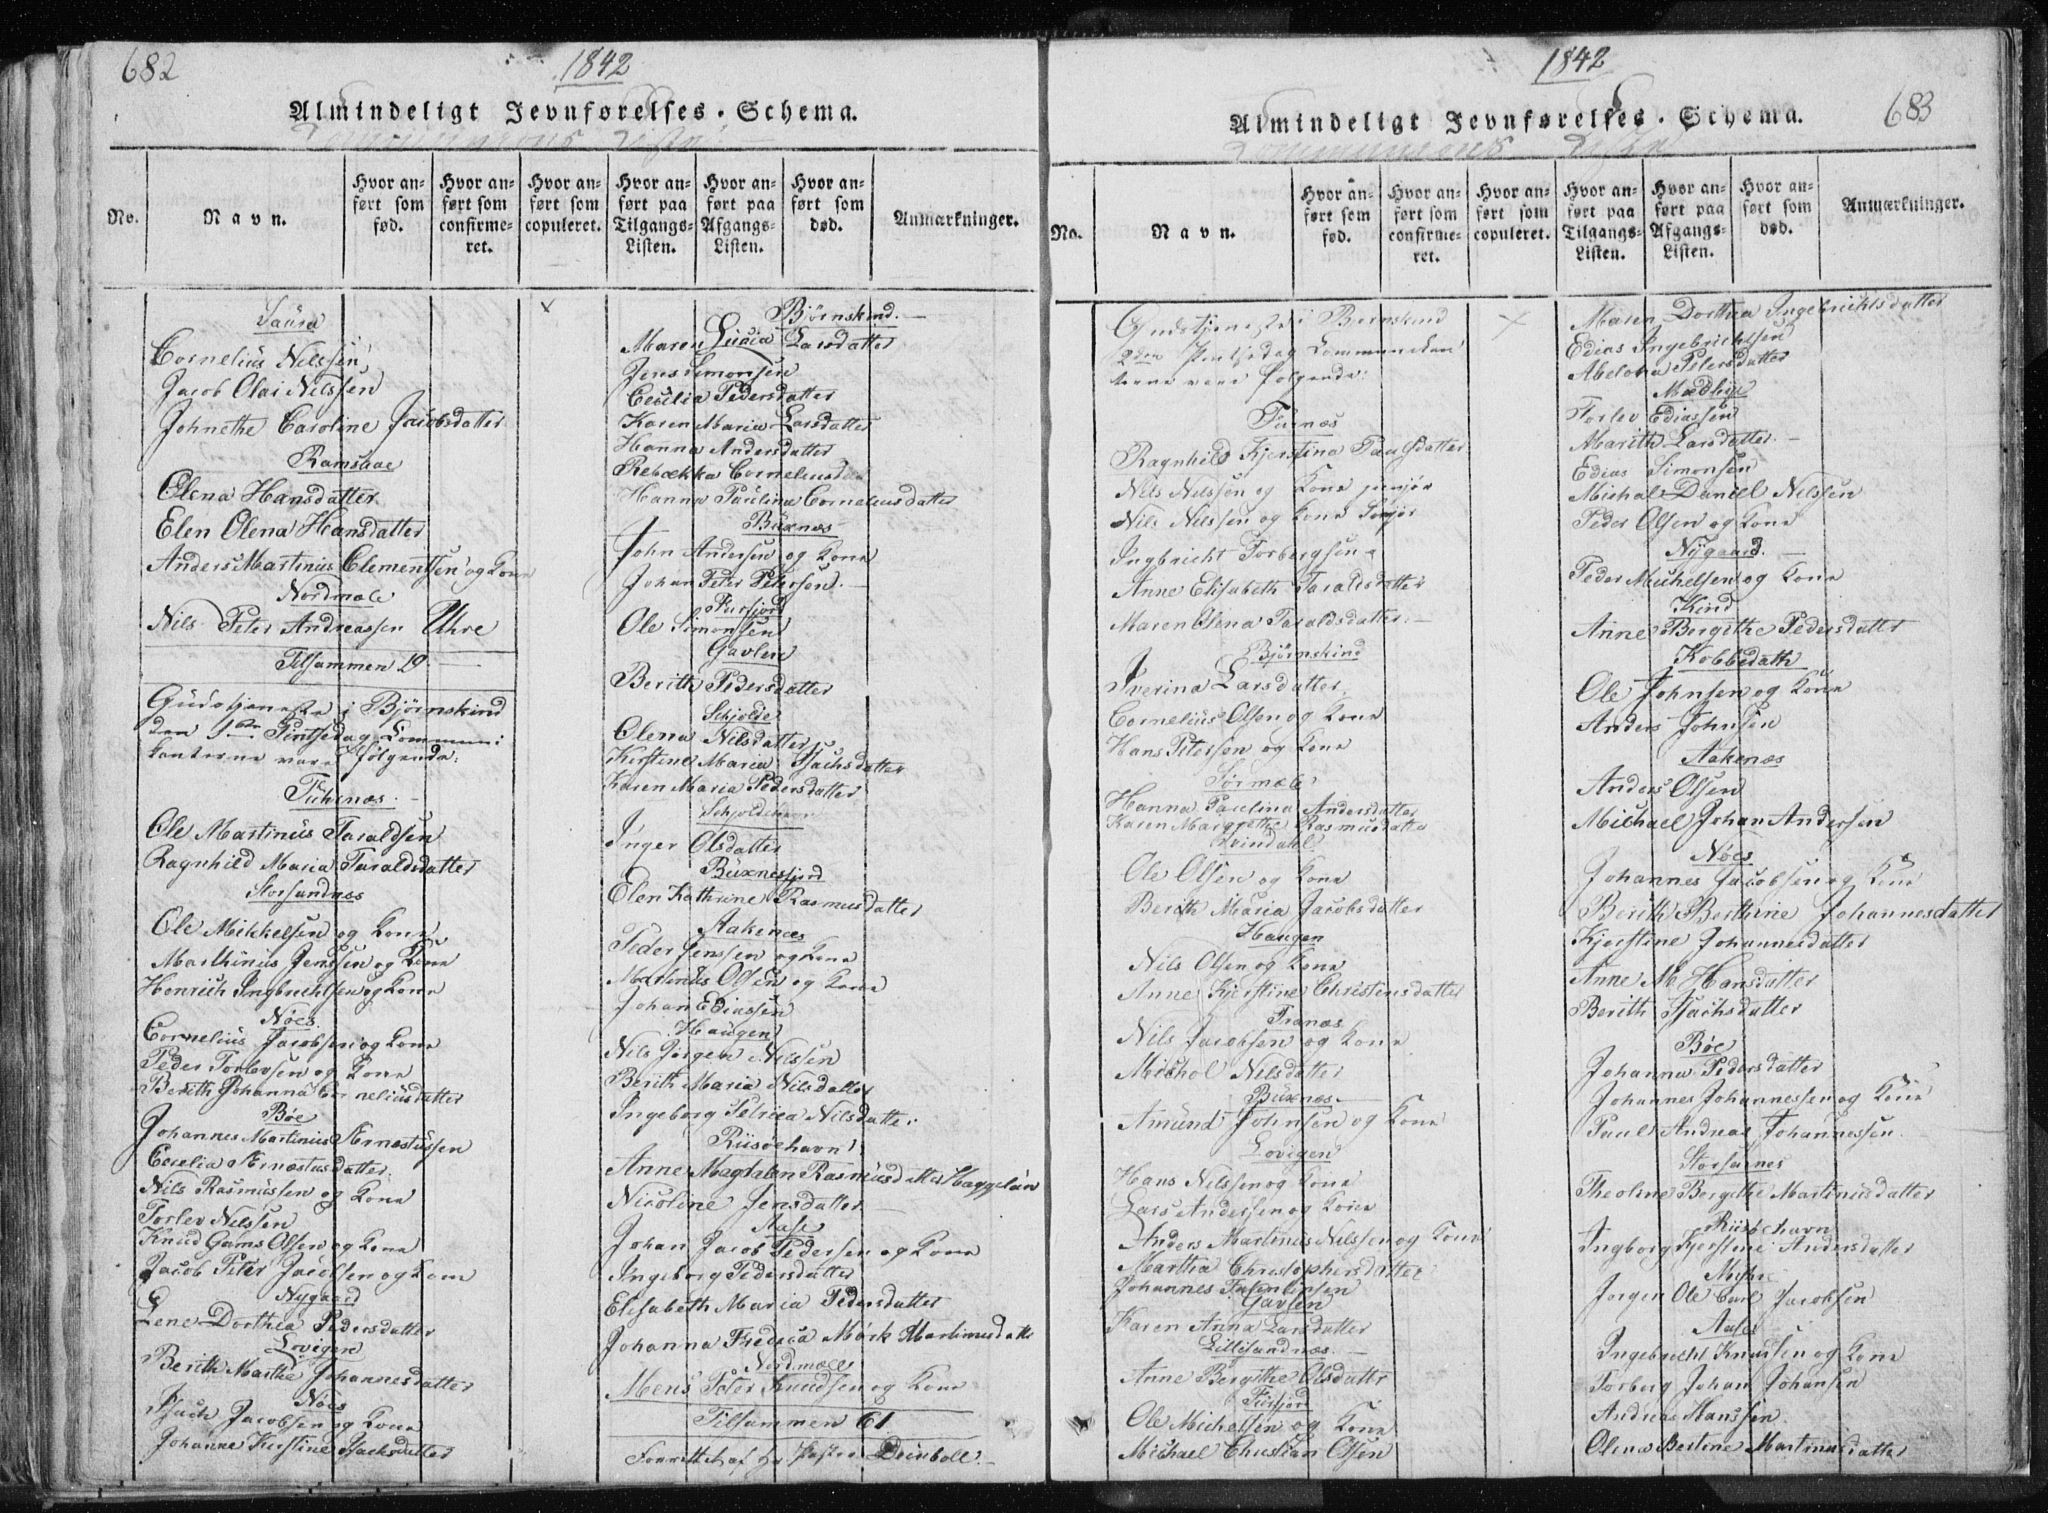 682
1842
Almindeligt Jevnførelses-Schema.
Communions Liste
No.
Navn.
Hvor anført som fød.
Hvor anført som confirmeret.
Hvor anført som copuleret.
Hvor anført paa Tilgangs-Listen.
Hvor anført paa Afgangs-Listen.
Hvor anført som død.
Anmærkninger.
Saura
Cornelius Nilssen
Jacob Olai Nilssen
Johnethe Caroline Jacobsdatter
Ramsaae
Olena Hansdatter
Elen Olena Hansdatter
Anders Martinus Clementsen og Kone
Nordmæle
Nils Peter Andreassen Uhre
Tilsammen 19
Gudstjeneste i Bjørnskind
den 1ste Pintsedag. Communi:
kanterne vare følgende:
Ole Martinus Taraldsen
Ragnhild Maria Taraldsdatter
Storsandnæs
Ole Mikkelsen og Kone
Marthinus Jenssen og Kone
Henrich Ingbrichtsen og Kone
Nöes
Cornelius Jacobsen og Kone
Peder Torlevsen og Kone
Berith Johanna Corneliusdatter
Böe
Johannes Martinus Arnæstussen
Cecelia Arnæstusdatter
Nils Rasmussen og Kone
Torlev Nilssen
Knud Gams Olsen og Kone
Jacob Peter Jacobsen og Kone
Nygaard
Lene Dorthea Pedersdatter
Lovigen
Berith Marthe Johannesdatter
Nöes
Isach Jacobsen og Kone
Johanne Kirstine Isacksdatter
x
Bjørnskind.
Maren Lucia Larsdatter
Jens Simonsen
Cecilia Pedersdatter
Karen Maria Larsdatter
Hanna Andersdatter
Rebækka Corneliusdatter
Hanna Paulina Corneliusdatter
Buxnæs
John Andersen og Kone
Johan Peter Petersen.
Fursjord
Ole Simonsen
Gavlen
Berith Pedersdatter
Schjolde
Olena Nilsdatter
Kirstine Maria Isachsdatter
Karen Maria Pedersdatter
Inger Olsdatter
Buxnesfjord
Elen Kathrine Rasmusdatter
Aakenæs
Peder Jenssen og Kone
Martinus Olsen og Kone
Johan Ediassen
Haugen
Nils Jörgen Nilssen
Berith Maria Nilsdatter
Ingeborg Petrica Nilsdatter
Riisöehavn
Anne Magdalen Rasmusdatter Haggelün
Nicoline Jensdatter
Aase
Johan Jacob Pedersen og Kone
Ingeborg Pedersdatter
Elisabeth Maria Pedersdatter
Johanna Fredrica Mörk Martinusdatter
Nordmæle
Mens Peter Knudsen og Kone
Tilsammen 61
Forrettet af Hr Pastor Deinboll.
683
1842
Almindeligt Jevnførelses-Schema.
Communions Liste
No.
Navn.
Hvor anført som fød.
Hvor anført som confirmeret.
Hvor anført som copuleret.
Hvor anført paa Tilgangs-Listen.
Hvor anført paa Afgangs-Listen.
Hvor anført som død.
Anmærkninger.
Gudstjeneste i Bjørnskind
2den Pintsedag Communikan
terne vare følgende:
Ragnhild Kjerstina Paulsdatter
Nils Nilssen og Kone junjor
Nils Nilssen og Kone Senjor
Ingbricht Torbergsen
Anne Elisabeth Taraldsdatter
Maren Olena Taraldsdatter
Bjørnskind
Iverina Larsdatter
Cornelius Olsen og Kone
Hans Petersen og Kone
Sörmæle
Hanna Paulina Andersdatter
Karen Margrethe Rasmusdatter
Kvindahl
Ole Olsen og Kone
Berith Maria Jacobsdatter
Haugen
Nils Olsen og Kone
Anne Kjerstine Christensdatter
Tranæs
Nils Jacobsen og Kone
Michol Nilsdatter
Buxnæs
Amund Johnsen og Kone
Lovigen
Hans Nilssen og Kone
Lars Andersen og Kone
Anders Martinus Nilssen og Kone
Martha Christophersdatter
Johannes
Gavlen
Karen Anna Larsdatter
Lillesandnæs
Anne Bergithe Olsdatter
Ole Michelsen og Kone
Michael Christian Olsen
x
Maren Dorthea Ingebrichtsdatter
Edias Ingebrichtsen
Abelona Petersdatter
Torlev Ediassen
Marith Larsdatter
Edias Simonsen
Michal Daniel Nilssen
Peder Olsen og Kone
Nygaard.
Peder Michelsen og Kone
Kind
Anne Bergithe Pedersdatter
Kobbedatle
Ole Johnsen og Kone
Anders Johnsen
Aakenæs
Anders Olsen
Michael Johan Andersen
Nöes
Johannes Jacobsen og Kone
Berith Berthine Johannesdatter
Kjerstine Johannesdatter
Anne M. Hansdatter
Berith Isachsdatter
Böe
Johanna Pedersdatter
Johannes Johannessen og Kone
Paul Andreas Johannessen
Storsannes
Theoline Bergithe Martinusdatter
Riisöehavn
Ingborg Kjerstine Andersdatter
Myhre
Jörgen Ole Carl Jacobsen
Aase
Ingebricht Knudsen og Kone
Torberg Johan Johansen
Andreas Hanssen
Olena Bertine Martinusdatter